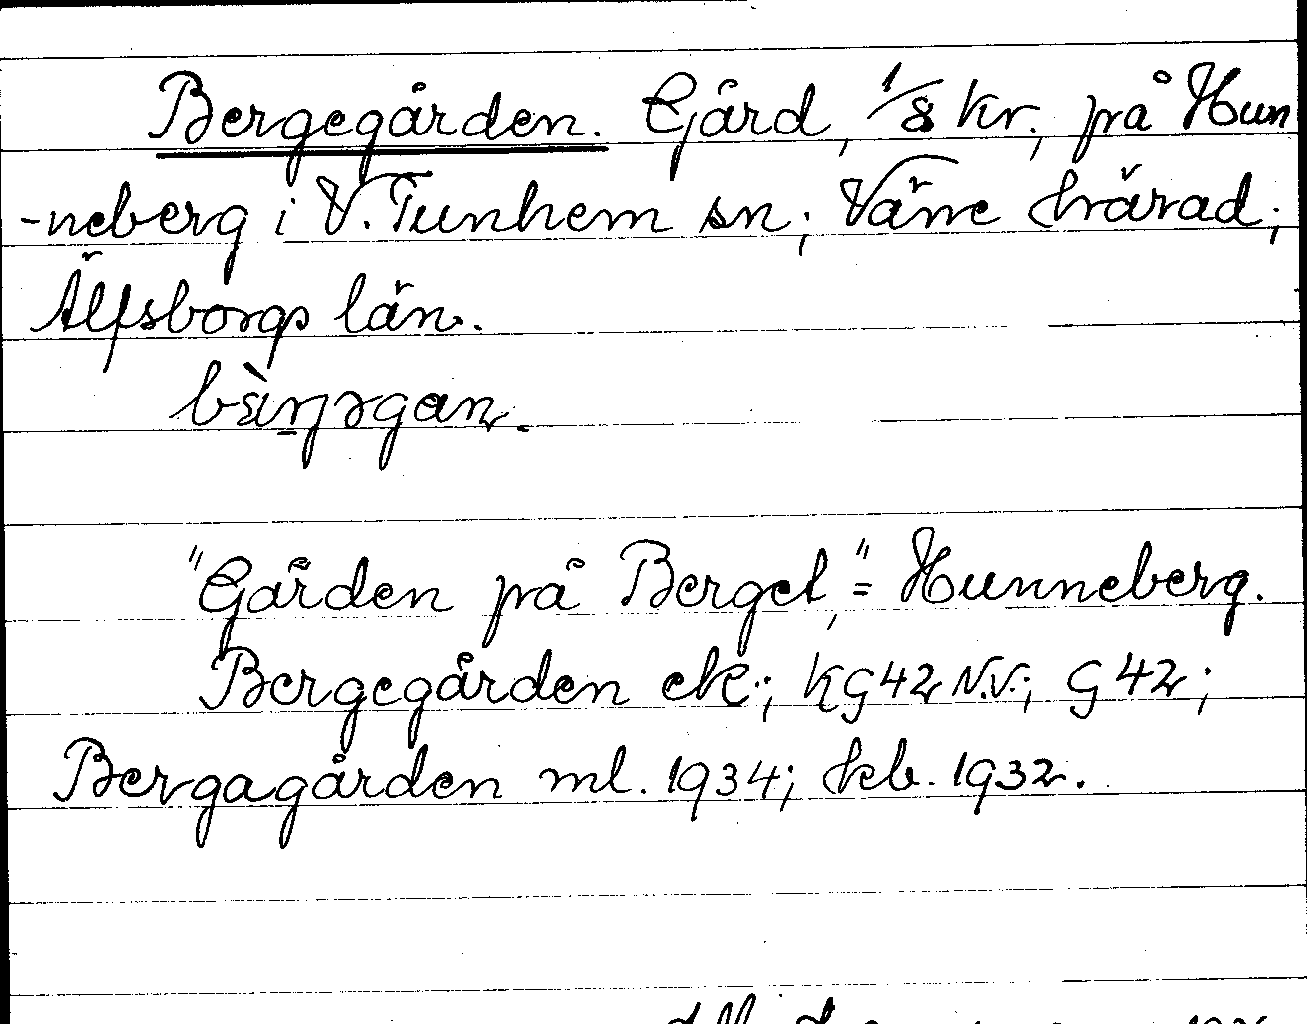 Bergegården. Gård, 1/8 kr., på Hun
-neberg i V. Tunhem sn; Väne härad;
Älfsborgs län.
"Gården på Berget," = Hunneberg.
Bergegården ek.; KG42 N.V.; G 42;
Bergagården ml. 1934; 1932.